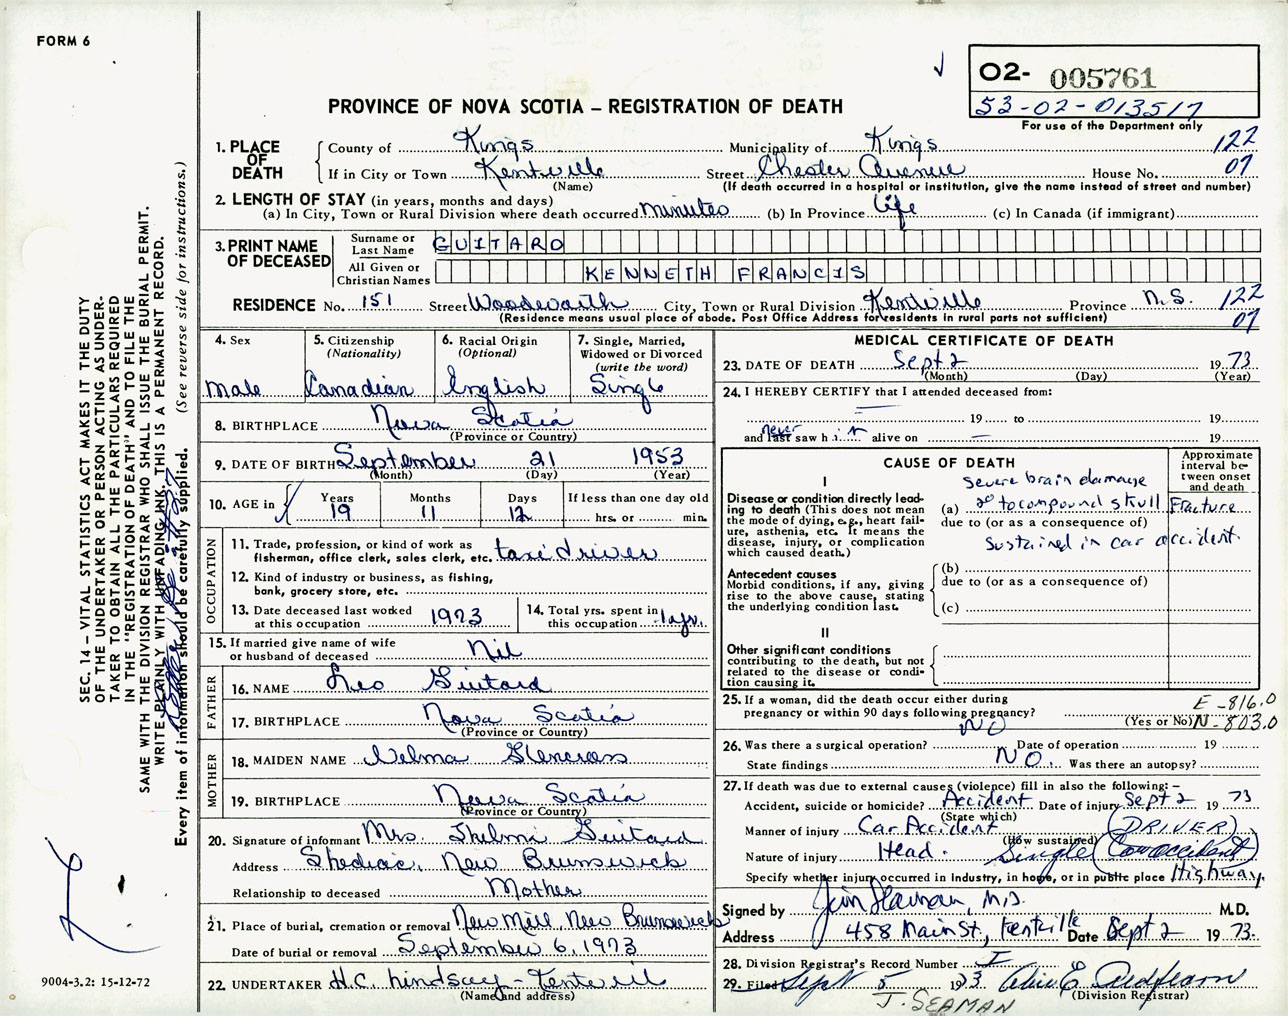 FORM 6
O2- 005761
53-02-013517
PROVINCE OF NOVA SCOTIA – REGISTRATION OF DEATH
For use of the Department only
1. PLACE OF DEATH
County of Kings Municipality of Kings 122
If in City or Town Kentville Street Chester Avenue House No. 07
(Name) (If death occurred in a hospital or institution, give the name instead of street and number)
2. LENGTH OF STAY (in years, months and days)
(a) In City, Town or Rural Division where death occurred minutes (b) In Province Life (c) In Canada (if immigrant)
3. PRINT NAME OF DECEASED
Surname or Last Name GUITARD
All Given or Christian Names KENNETH FRANCIS
RESIDENCE No. 151 Street Woodworth City, Town or Rural Division Kentville Province N.S. 122
(Residence means usual place of abode. Post Office Address for residents in rural parts not sufficient) 07
4. Sex
male
5. Citizenship (Nationality)
Canadian
6. Racial Origin (Optional)
English
7. Single, Married, Widowed or Divorced (write the word)
Single
8. BIRTHPLACE Nova Scotia
(Province or Country)
9. DATE OF BIRTH September 21 1953
(Month) (Day) (Year)
10. AGE in Years Months Days If less than one day old
19 11 12 hrs. or min.
OCCUPATION
11. Trade, profession, or kind of work as fisherman, office clerk, sales clerk, etc. taxi driver
12. Kind of industry or business, as fishing, bank, grocery store, etc.
13. Date deceased last worked at this occupation 1973
14. Total yrs. spent in this occupation 1 yr.
15. If married give name of wife or husband of deceased Nil
FATHER
16. NAME Leo Guitard
17. BIRTHPLACE Nova Scotia
(Province or Country)
MOTHER
18. MAIDEN NAME Velma Glencross
19. BIRTHPLACE Nova Scotia
(Province or Country)
20. Signature of informant Mrs. Thelma Guitard
Address Shediac, New Brunswick
Relationship to deceased Mother
21. Place of burial, cremation or removal New Mill, New Brunswick
Date of burial or removal September 6, 1973
22. UNDERTAKER H.C. Lindsay - Kentville
(Name and address)
MEDICAL CERTIFICATE OF DEATH
23. DATE OF DEATH Sept 2 1973
(Month) (Day) (Year)
24. I HEREBY CERTIFY that I attended deceased from:
— 19 to 19
and last never saw him alive on — 19
CAUSE OF DEATH
Approximate interval between onset and death
I
Disease or condition directly leading to death (This does not mean the mode of dying, e.g., heart failure, asthenia, etc. It means the disease, injury, or complication which caused death.)
severe brain damage
(a) 2° to compound skull Fracture
due to (or as a consequence of)
sustained in car accident.
Antecedent causes
Morbid conditions, if any, giving rise to the above cause, stating the underlying condition last.
(b)
due to (or as a consequence of)
(c)
II
Other significant conditions
contributing to the death, but not related to the disease or condition causing it.
25. If a woman, did the death occur either during pregnancy or within 90 days following pregnancy? (Yes or No)
E-816.0
N-803.0
26. Was there a surgical operation? NO Date of operation 19
State findings NO. Was there an autopsy?
27. If death was due to external causes (violence) fill in also the following:–
Accident, suicide or homicide? Accident Date of injury Sept 2 1973
(State which)
Manner of injury Car Accident (DRIVER)
(How sustained)
Nature of injury Head. Single (Car accident)
Specify whether injury occurred in industry, in home, or in public place Highway.
Signed by M.D. M.D.
Address 458 Main St., Kentville Date Sept 2 1973.
28. Division Registrar's Record Number I
29. Filed Sept 5 1973
(Division Registrar)
J. SEAMAN
SEC. 14 – VITAL STATISTICS ACT MAKES IT THE DUTY
OF THE UNDERTAKER OR PERSON ACTING AS UNDER-
TAKER TO OBTAIN ALL THE PARTICULARS REQUIRED
IN THE "REGISTRATION OF DEATH" AND TO FILE THE
SAME WITH THE DIVISION REGISTRAR WHO SHALL ISSUE THE BURIAL PERMIT.
WRITE PLAINLY WITH UNFADING INK. THIS IS A PERMANENT RECORD.
Every item of information should be carefully supplied. (See reverse side for instructions.)
9004-3.2: 15-12-72